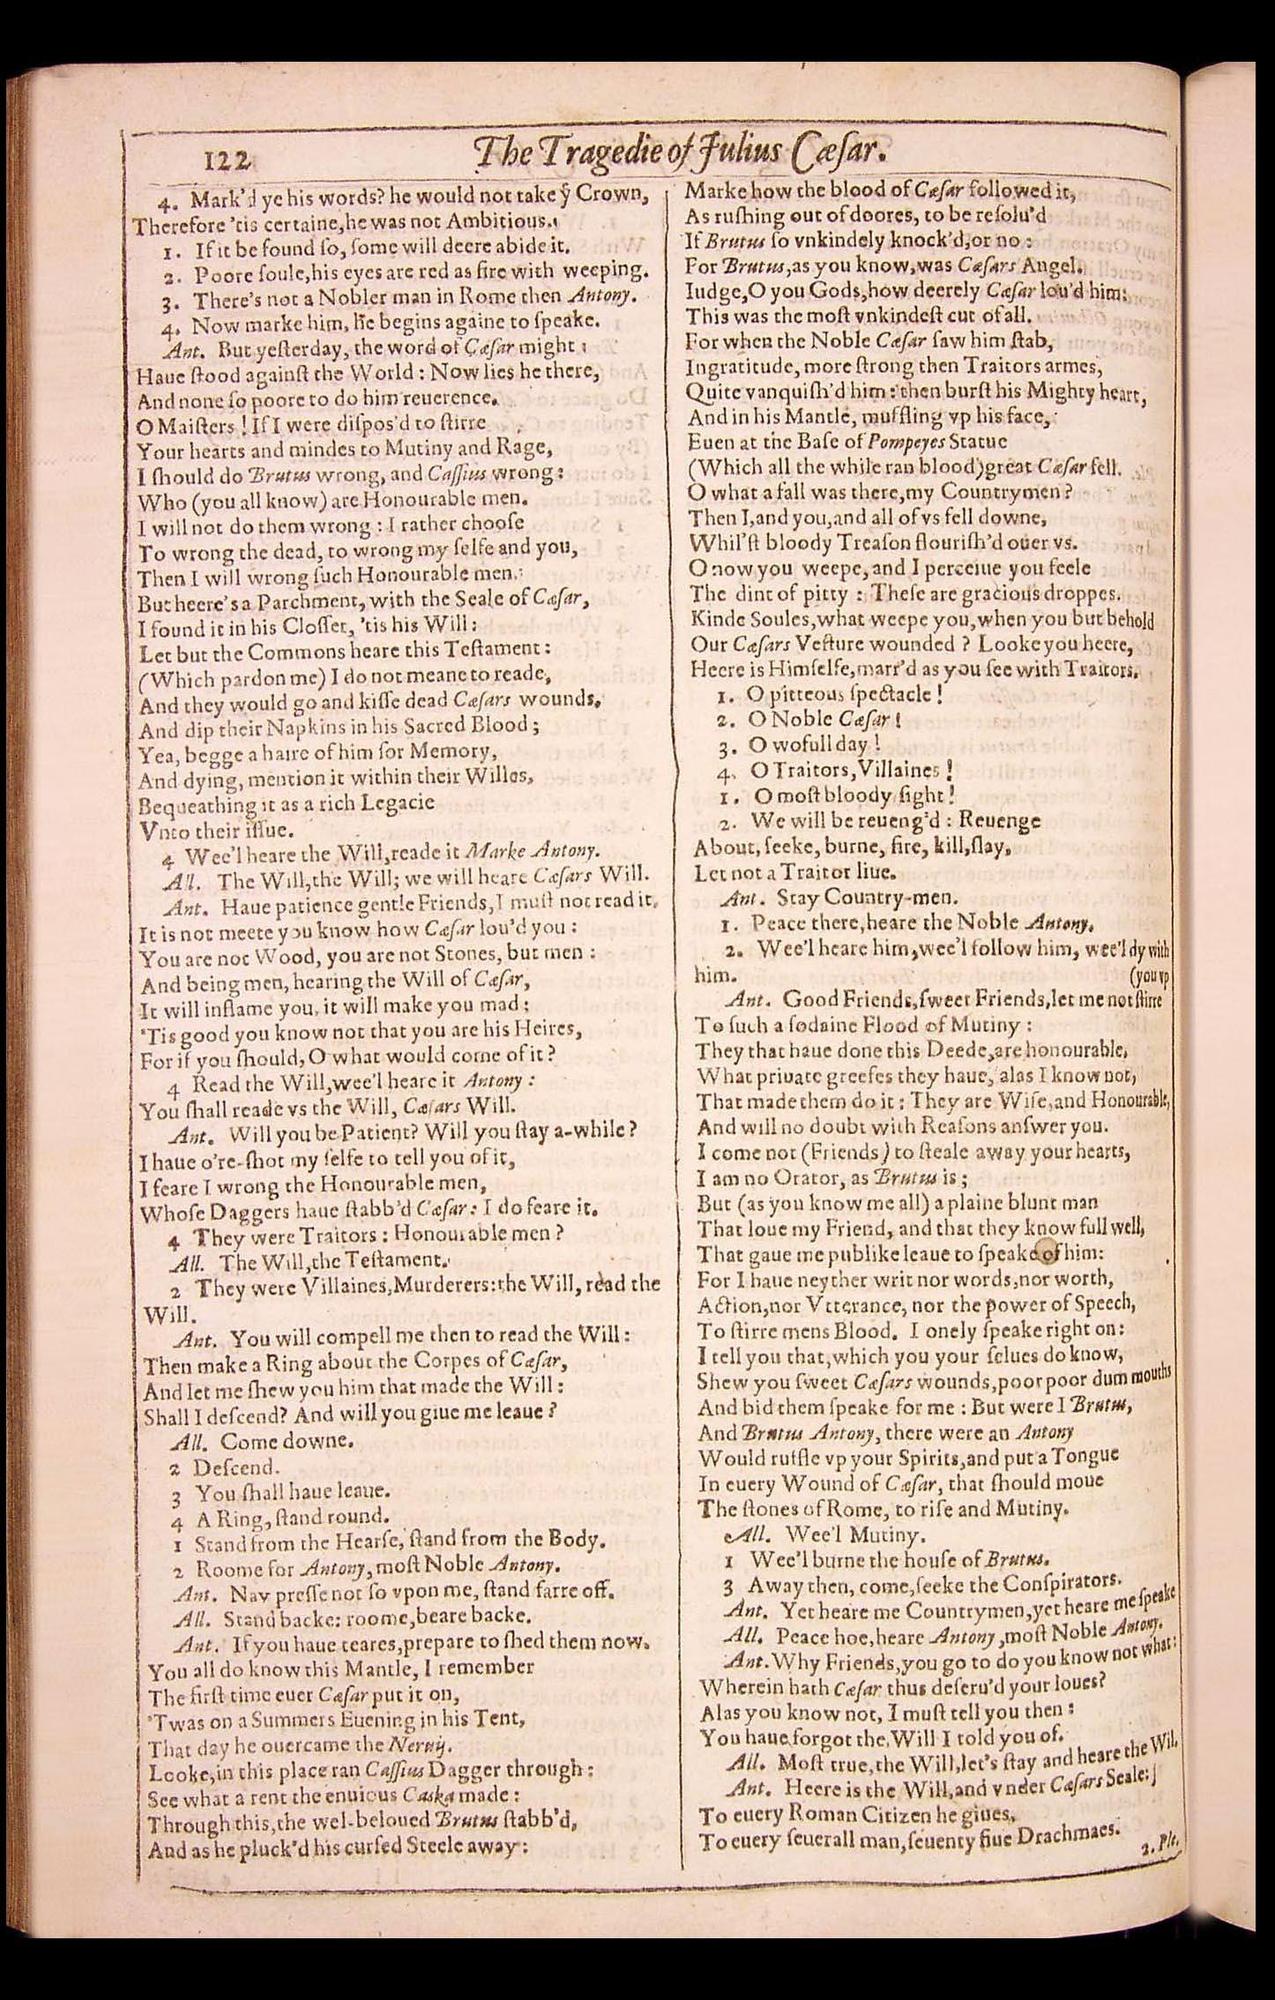 122
The Tragedie of Julius Cæſar.
4. Mark'd ye his words? he would not take yͤ Crown,
Therefore 'tis certaine, he was not Ambitious.
1. If it be found ſo, ſome will deere abide it.
2. Poore ſoule, his eyes are red as fire with weeping.
3. There's not a Nobler man in Rome then Antony.
4. Now marke him, he begins againe to ſpeake.
Ant. But yeſterday, the word of Cæſar might
Haue ſtood againſt the World: Now lies he there,
And none ſo poore to do him reuerence.
O Maiſters! If I were diſpos'd to ſtirre
Your hearts and mindes to Mutiny and Rage,
I ſhould do Brutus wrong, and Caſſius wrong:
Who (you all know) are Honourable men.
I will not do them wrong: I rather chooſe
To wrong the dead, to wrong my ſelfe and you,
Then I will wrong ſuch Honourable men.
But heere's a Parchment, with the Seale of Cæſar,
I found it in his Cloſſet, 'tis his Will:
Let but the Commons heare this Teſtament:
(Which pardon me) I do not meane to reade,
And they would go and kiſſe dead Cæſars wounds,
And dip their Napkins in his Sacred Blood;
Yea, begge a haire of him for Memory,
And dying, mention it within their Willes,
Bequeathing it as a rich Legacie
Vnto their iſſue.
4 Wee'l heare the Will, reade it Marke Antony.
All. The Will, the Will; we will heare Cæſars Will.
Ant. Haue patience gentle Friends, I muſt not read it.
It is not meete you know how Cæſar lou'd you:
You are not Wood, you are not Stones, but men:
And being men, hearing the Will of Cæſar,
It will inflame you, it will make you mad:
'Tis good you know not that you are his Heires,
For if you ſhould, O what would come of it?
4 Read the Will, wee'l heare it Antony:
You ſhall reade vs the Will, Cæſars Will.
Ant. Will you be Patient? Will you ſtay a-while?
I haue o're-ſhot my ſelfe to tell you of it,
I feare I wrong the Honourable men,
Whoſe Daggers haue ſtabb'd Cæſar: I do feare it.
4 They were Traitors: Honourable men?
All. The Will, the Teſtament.
2 They were Villaines, Murderers: the Will, read the
Will.
Ant. You will compell me then to read the Will:
Then make a Ring about the Corpes of Cæſar,
And let me ſhew you him that made the Will:
Shall I deſcend? And will you giue me leaue?
All. Come downe.
2 Deſcend.
3 You ſhall haue leaue.
4 A Ring, ſtand round.
1 Stand from the Hearſe, ſtand from the Body.
2 Roome for Antony, moſt Noble Antony.
Ant. Nay preſſe not ſo vpon me, ſtand farre off.
All. Stand backe: roome, beare backe.
Ant. If you haue teares, prepare to ſhed them now.
You all do know this Mantle, I remember
The firſt time euer Cæſar put it on,
'Twas on a Summers Euening in his Tent,
That day he ouercame the Neruij.
Looke, in this place ran Caſſius Dagger through:
See what a rent the enuious Caska made:
Through this, the wel-beloued Brutus ſtabb'd,
And as he pluck'd his curſed Steele away:
Marke how the blood of Cæſar followed it,
As ruſhing out of doores, to be reſolu'd
If Brutus ſo vnkindely knock'd, or no:
For Brutus, as you know, was Cæſars Angel.
Iudge, O you Gods, how deerely Cæſar lou'd him:
This was the moſt vnkindeſt cut of all.
For when the Noble Cæſar ſaw him ſtab,
Ingratitude, more ſtrong then Traitors armes,
Quite vanquiſh'd him: then burſt his Mighty heart,
And in his Mantle, muffling vp his face,
Euen at the Baſe of Pompeyes Statue
(Which all the while ran blood) great Cæſar fell.
O what a fall was there, my Countrymen?
Then I, and you, and all of vs fell downe,
Whil'ſt bloody Treaſon flouriſh'd ouer vs.
O now you weepe, and I perceiue you feele
The dint of pitty: Theſe are gracious droppes.
Kinde Soules, what weepe you, when you but behold
Our Cæſars Veſture wounded? Looke you heere,
Heere is Himſelfe, marr'd as you ſee with Traitors.
1. O pitteous ſpectacle!
2. O Noble Cæſar!
3. O wofull day!
4. O Traitors, Villaines!
1. O moſt bloody ſight!
2. We will be reueng'd: Reuenge
About, ſeeke, burne, fire, kill, ſlay,
Let not a Traitor liue.
Ant. Stay Country-men.
1. Peace there, heare the Noble Antony.
2. Wee'l heare him, wee'l follow him, wee'l dy with
him. (you vp
Ant. Good Friends, ſweet Friends, let me not ſtirre
To ſuch a ſodaine Flood of Mutiny:
They that haue done this Deede, are honourable.
What priuate greefes they haue, alas I know not,
That made them do it: They are Wiſe, and Honourable,
And will no doubt with Reaſons anſwer you.
I come not (Friends) to ſteale away your hearts,
I am no Orator, as Brutus is;
But (as you know me all) a plaine blunt man
That loue my Friend, and that they know full well,
That gaue me publike leaue to ſpeake of him:
For I haue neyther writ nor words, nor worth,
Action, nor Vtterance, nor the power of Speech,
To ſtirre mens Blood. I onely ſpeake right on:
I tell you that, which you your ſelues do know,
Shew you ſweet Cæſars wounds, poor poor dum mouths
And bid them ſpeake for me: But were I Brutus,
And Brutus Antony, there were an Antony
Would ruffle vp your Spirits, and put a Tongue
In euery Wound of Cæſar, that ſhould moue
The ſtones of Rome, to riſe and Mutiny.
All. Wee'l Mutiny.
1 Wee'l burne the houſe of Brutus.
3 Away then, come, ſeeke the Conſpirators.
Ant. Yet heare me Countrymen, yet heare me ſpeake
All. Peace hoe, heare Antony, moſt Noble Antony.
Ant. Why Friends, you go to do you know not what:
Wherein hath Cæſar thus deſeru'd your loues?
Alas you know not, I muſt tell you then:
You haue forgot the Will I told you of.
All. Moſt true, the Will, let's ſtay and heare the Wil.
Ant. Heere is the Will, and vnder Cæſars Seale:
To euery Roman Citizen he giues,
To euery ſeuerall man, ſeuenty fiue Drachmaes.
2. Ple.